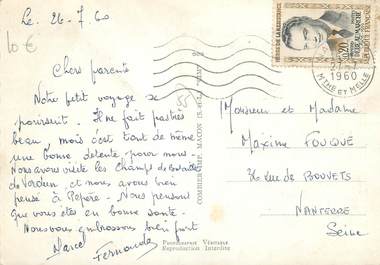 Le. 26-7.60
10 €
Chers parents
Notre petit voyage se
poursuit. Il ne fait pas très
beau, mais c'est tout de même
une bonne détente pour nous.
Nous avons visité les Champs de bataille
de Verdun, et nous avons bien
pensé à Pépère. Nous pensons
que vous êtes en bonne santé.
Nous vous embrassons bien fort
Marcel Fernande
COMBIER IMP. MACON (S.-&-L.)
Photographie Véritable
Reproduction Interdite
HÉROS DE LA RÉSISTANCE
0,20
RÉPUBLIQUE FRANÇAISE
1960
MTHE ET MELLE
Monsieur et Madame
Maxime FOUQUE
rue des BOUVETS
NANTERRE
Seine